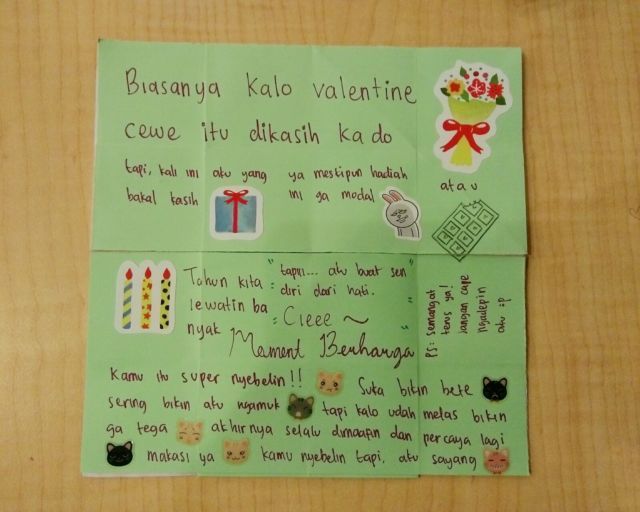 Biasanya kalo valentine
cewe itu dikasih kado
atau
tapi, kali ini aku yang
bakal kasih
ya meskipun hadiah
ini ga modal
Tahun kita
lewatin ba
nyak
"tapiii... aku buat sen
diri dari hati."
"Cieee ~"
Moment Berharga
PS: semangat
terus ya!
jangan cape
ngadepin
aku :p
Kamu itu super nyebelin!! Suka bikin bete
sering bikin aku ngamuk tapi kalo udah melas bikin
ga tega akhirnya selalu dimaafin dan percaya lagi
makasi ya kamu nyebelin tapi, aku sayang